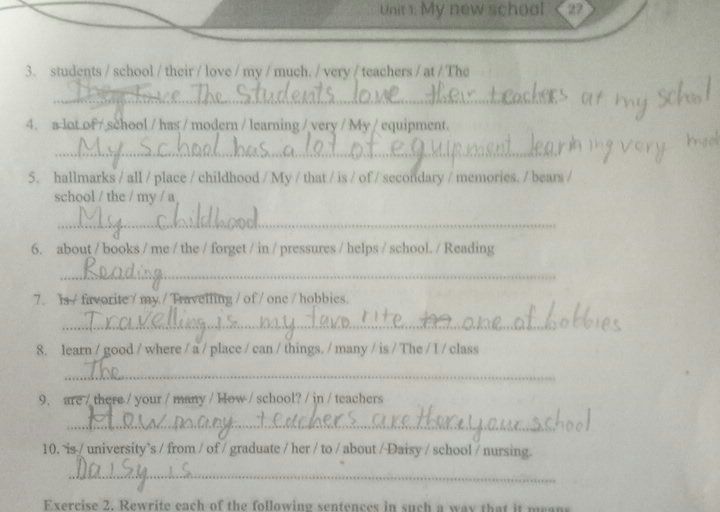 Unit 1. My new school 27
3. students / school / their / love / my / much. / very / teachers / at / The
The Students love their teachers at my school
4. a lot of / school / has / modern / learning / very / My / equipment.
My school has a lot of equipment learning very
5. hallmarks / all / place / childhood / My / that / is / of / secondary / memories. / bears /
school / the / my / a
My childhood
6. about / books / me / the / forget / in / pressures / helps / school. / Reading
Reading
7. Is / favorite / my / Travelling / of / one / hobbies.
Travelling is my favo rite one of hobbies
8. learn / good / where / a / place / can / things. / many / is / The / I / class
The
9. are / there / your / many / How / school? / in / teachers
How many teachers are there your school
10. is / university's / from / of / graduate / her / to / about / Daisy / school / nursing.
Daisy is
Exercise 2. Rewrite each of the following sentences in such a way that it means